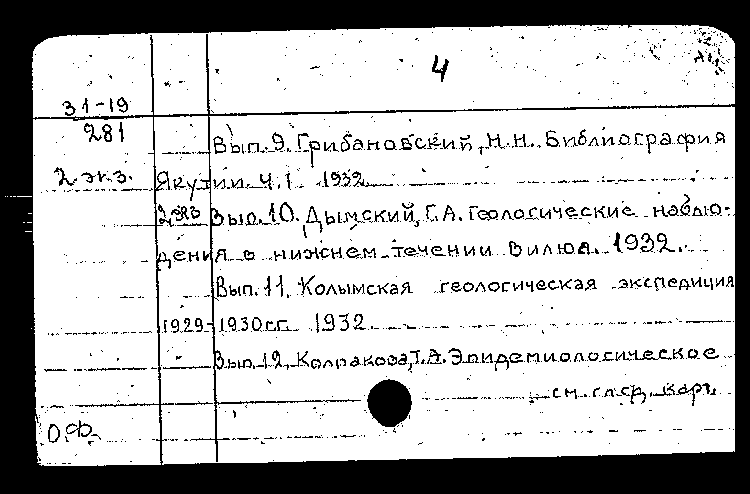 4
31-19
281
Вып. 9. Грибановский, Н.Н. Библиография
2 экз.
Якутии. Ч. I 1932.
2 экз Вып. 10. Дымский, Г.А. Геологические наблю-
дения в нижнем течении Вилюя. 1932.
Вып. 11. Колымская геологическая экспедиция
1929-1930 гг. 1932.
Вып. 12. Колпакова, Т.А. Эпидемиологическое
см. след. карт.
О.Ф.